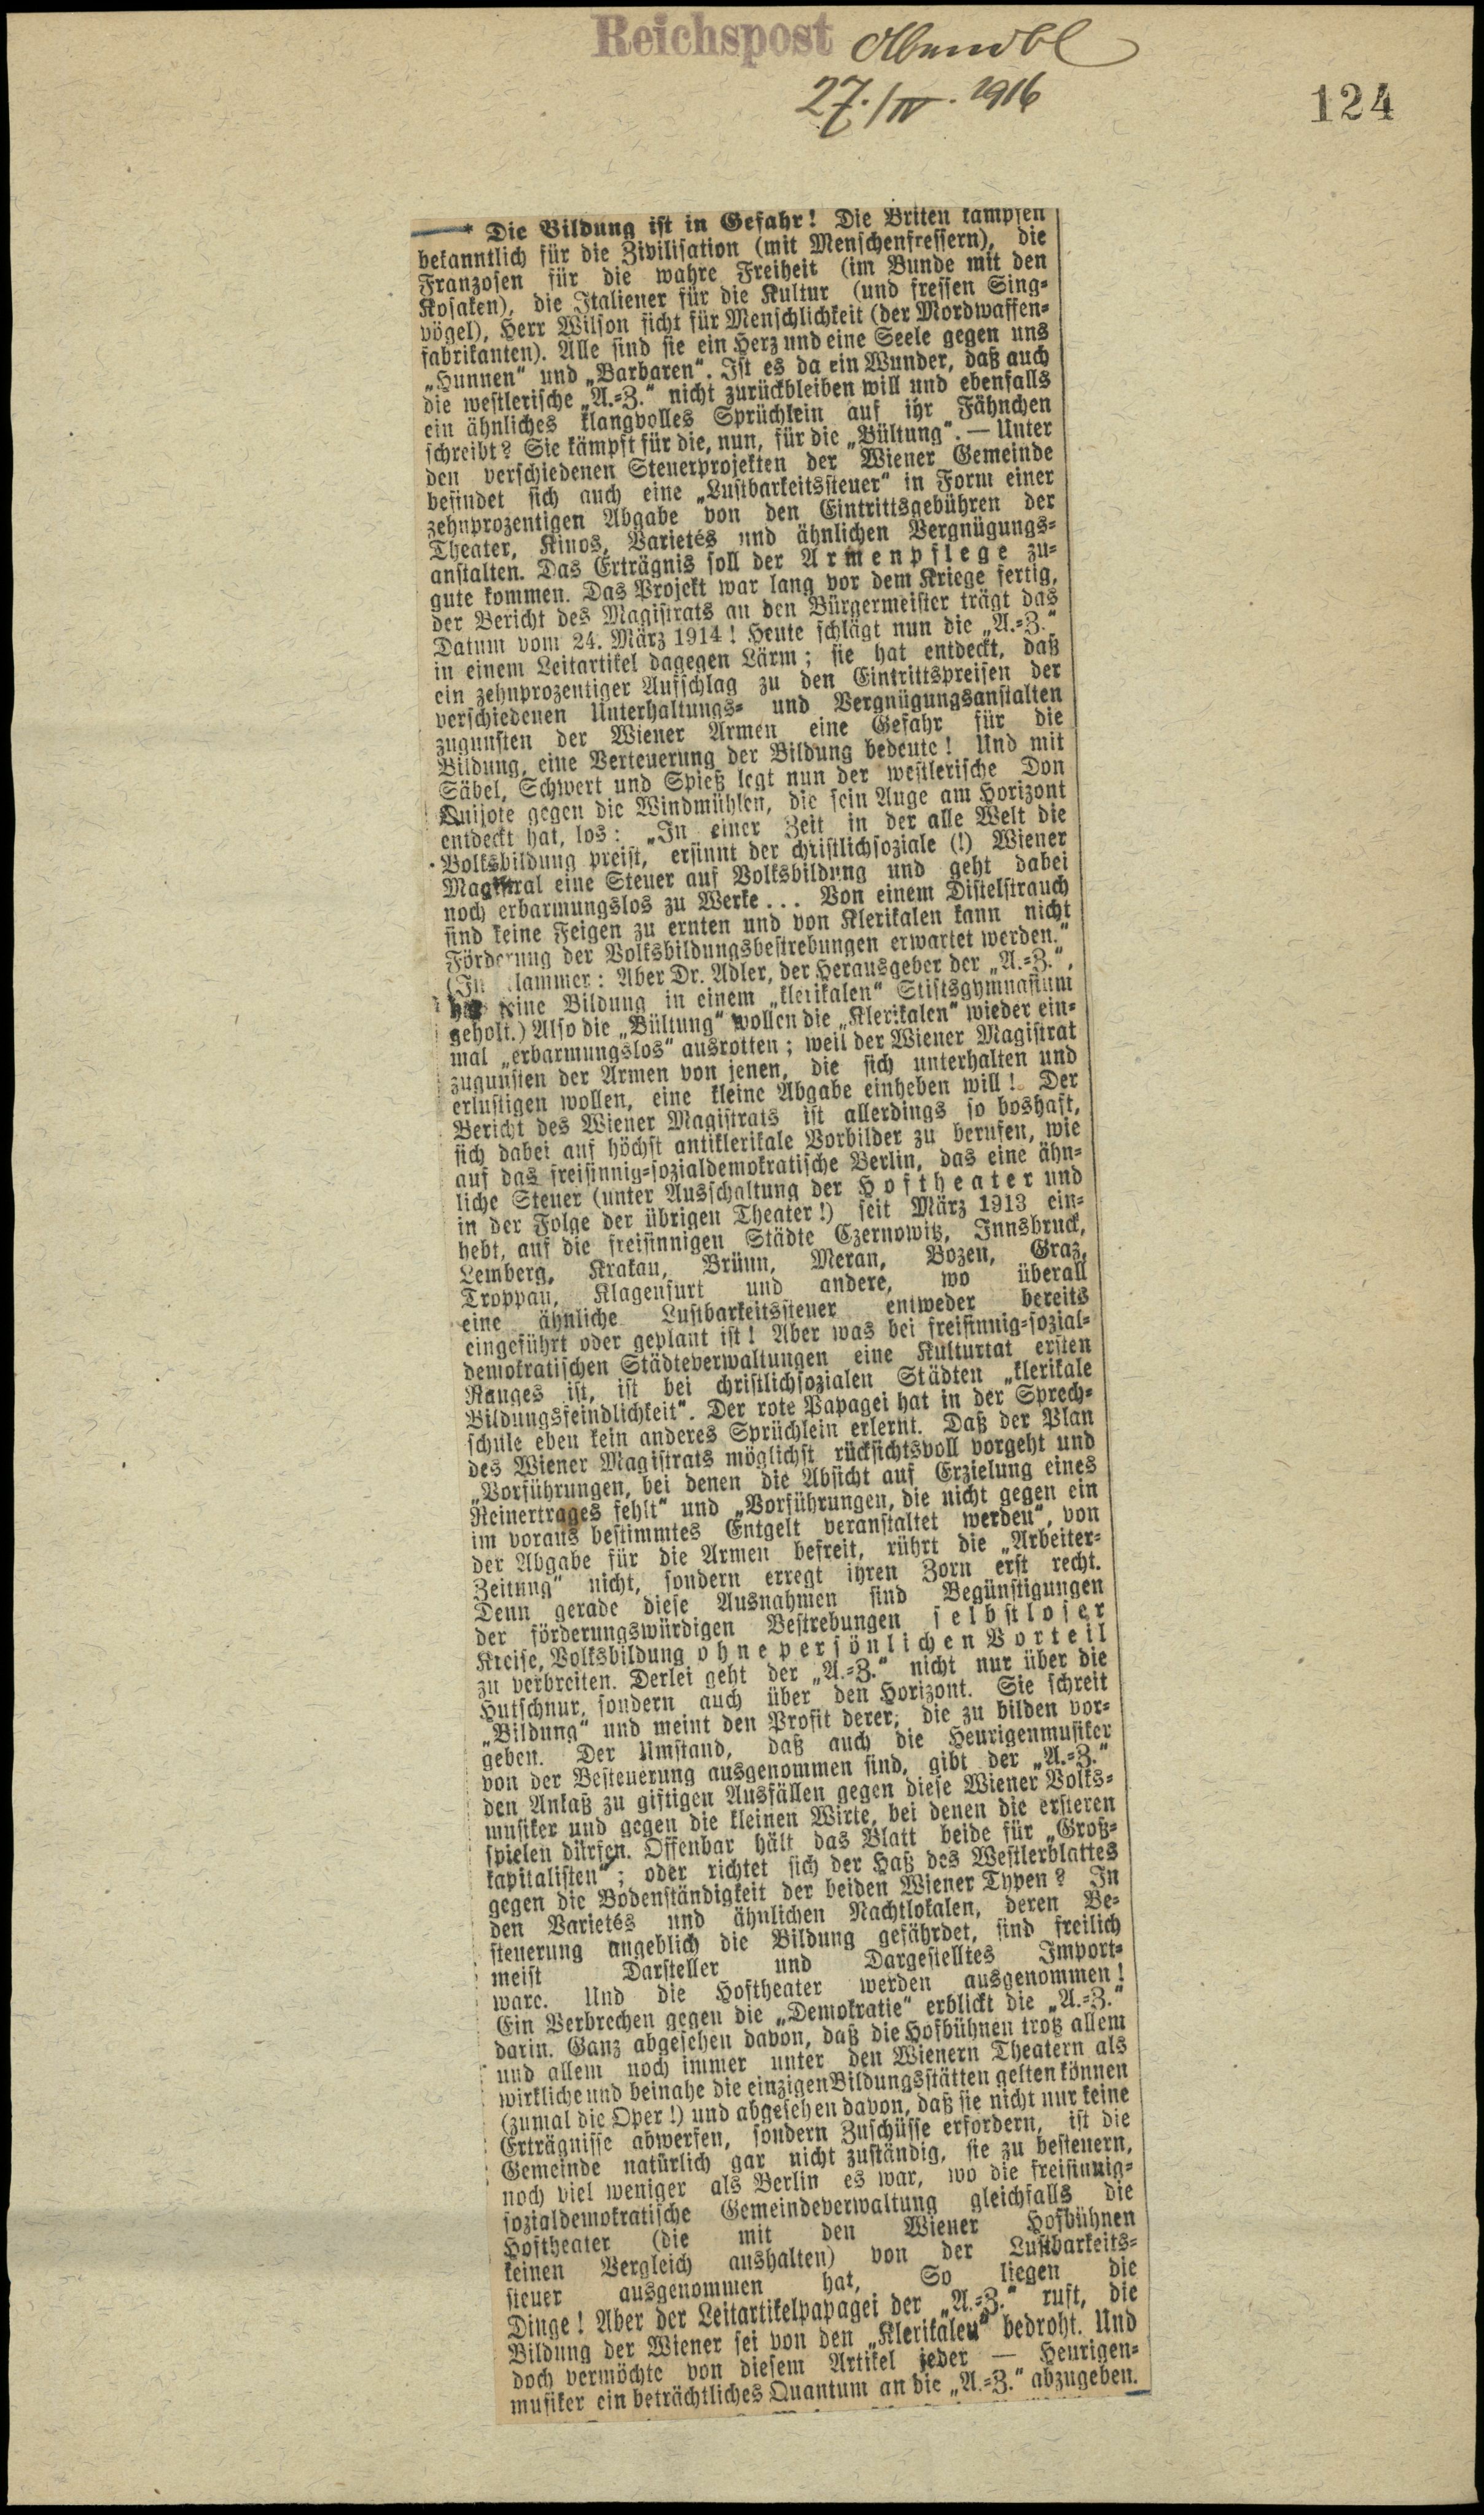 Reichspost Abendbl
27./IV. 1916
124
* Die Bildung ist in Gefahr! Die Briten kämpfen
bekanntlich für die Zivilisation (mit Menschenfressern), die
Franzosen für die wahre Freiheit (im Bunde mit den
Kosaken), die Italiener für die Kultur (und fressen Sing-
vögel), Herr Wilson ficht für Menschlichkeit (der Mordwaffen-
fabrikanten). Alle sind sie ein Herz und eine Seele gegen uns
„Hunnen“ und „Barbaren“. Ist es da ein Wunder, daß auch
die westlerische „A.-Z.“ nicht zurückbleiben will und ebenfalls
ein ähnliches klangvolles Sprüchlein auf ihr Fähnchen
schreibt? Sie kämpft für die, nun, für die „Bültung“. — Unter
den verschiedenen Steuerprojekten der Wiener Gemeinde
befindet sich auch eine „Lustbarkeitssteuer“ in Form einer
zehnprozentigen Abgabe von den Eintrittsgebühren der
Theater, Kinos, Varietés und ähnlichen Vergnügungs-
anstalten. Das Erträgnis soll der Armenpflege zu-
gute kommen. Das Projekt war lang vor dem Kriege fertig,
der Bericht des Magistrats an den Bürgermeister trägt das
Datum vom 24. März 1914! Heute schlägt nun die „A.-Z.“
in einem Leitartikel dagegen Lärm; sie hat entdeckt, daß
ein zehnprozentiger Aufschlag zu den Eintrittspreisen der
verschiedenen Unterhaltungs- und Vergnügungsanstalten
zugunsten der Wiener Armen eine Gefahr für die
Bildung, eine Verteuerung der Bildung bedeute! Und mit
Säbel, Schwert und Spieß legt nun der westlerische Don
Quijote gegen die Windmühlen, die sein Auge am Horizont
entdeckt hat, los: „In einer Zeit in der alle Welt die
Volksbildung preist, ersinnt der christlichsoziale (!) Wiener
Magistrat eine Steuer auf Volksbildung und geht dabei
noch erbarmungslos zu Werke... Von einem Distelstrauch
sind keine Feigen zu ernten und von Klerikalen kann nicht
Förderung der Volksbildungsbestrebungen erwartet werden.“
(In lammer: Aber Dr. Adler, der Herausgeber der „A.-Z.“,
seine Bildung in einem „klerikalen“ Stiftsgymnasium
geholt.) Also die „Bültung“ wollen die „Klerikalen“ wieder ein-
mal „erbarmungslos“ ausrotten; weil der Wiener Magistrat
zugunsten der Armen von jenen, die sich unterhalten und
erlustigen wollen, eine kleine Abgabe einheben will! Der
Bericht des Wiener Magistrats ist allerdings so boshaft,
sich dabei auf höchst antiklerikale Vorbilder zu berufen, wie
auf das freisinnig-sozialdemokratische Berlin, das eine ähn-
liche Steuer (unter Ausschaltung der Hoftheater und
in der Folge der übrigen Theater!) seit März 1913 ein-
hebt, auf die freisinnigen Städte Czernowitz, Innsbruck,
Lemberg, Krakau, Brünn, Meran, Bozen, Graz,
Troppau, Klagenfurt und andere, wo überall
eine ähnliche Lustbarkeitssteuer entweder bereits
eingeführt oder geplant ist! Aber was bei freisinnig-sozial-
demokratischen Städteverwaltungen eine Kulturtat ersten
Ranges ist, ist bei christlichsozialen Städten „klerikale
Bildungsfeindlichkeit“. Der rote Papagei hat in der Sprech-
schule eben kein anderes Sprüchlein erlernt. Daß der Plan
des Wiener Magistrats möglichst rücksichtsvoll vorgeht und
„Vorführungen, bei denen die Absicht auf Erzielung eines
Reinertrages fehlt“ und „Vorführungen, die nicht gegen ein
im voraus bestimmtes Entgelt veranstaltet werden“, von
der Abgabe für die Armen befreit, rührt die „Arbeiter-
Zeitung“ nicht, sondern erregt ihren Zorn erst recht.
Denn gerade diese Ausnahmen sind Begünstigungen
der förderungswürdigen Bestrebungen selbstloser
Kreise, Volksbildung ohne persönlichen Vorteil
zu verbreiten. Derlei geht der „A.-Z.“ nicht nur über die
Hutschnur, sondern auch über den Horizont. Sie schreit
„Bildung“ und meint den Profit derer, die zu bilden vor-
geben. Der Umstand, daß auch die Heurigenmusiker
von der Besteuerung ausgenommen sind, gibt der „A.-Z.“
den Anlaß zu giftigen Ausfällen gegen diese Wiener Volks-
musiker und gegen die kleinen Wirte, bei denen die ersteren
spielen dürfen. Offenbar hält das Blatt beide für „Groß-
kapitalisten“; oder richtet sich der Haß des Westlerblattes
gegen die Bodenständigkeit der beiden Wiener Typen? In
den Varietés und ähnlichen Nachtlokalen, deren Be-
steuerung angeblich die Bildung gefährdet, sind freilich
meist Darsteller und Dargestelltes Import-
ware. Und die Hoftheater werden ausgenommen!
Ein Verbrechen gegen die „Demokratie“ erblickt die „A.-Z.“
darin. Ganz abgesehen davon, daß die Hofbühnen trotz allem
und allem noch immer unter den Wienern Theatern als
wirkliche und beinahe die einzigen Bildungsstätten gelten können
(zumal die Oper!) und abgesehen davon, daß sie nicht nur keine
Erträgnisse abwerfen, sondern Zuschüsse erfordern, ist die
Gemeinde natürlich gar nicht zuständig, sie zu besteuern,
noch viel weniger als Berlin es war, wo die freisinnig-
sozialdemokratische Gemeindeverwaltung gleichfalls die
Hoftheater (die mit den Wiener Hofbühnen
keinen Vergleich aushalten) von der Lustbarkeits-
steuer ausgenommen hat, So liegen die
Dinge! Aber der Leitartikelpapagei der „A.-Z.“ ruft, die
Bildung der Wiener sei von den „Klerikalen“ bedroht. Und
doch vermöchte von diesem Artikel jeder — Heurigen-
musiker ein beträchtliches Quantum an die „A.-Z.“ abzugeben.